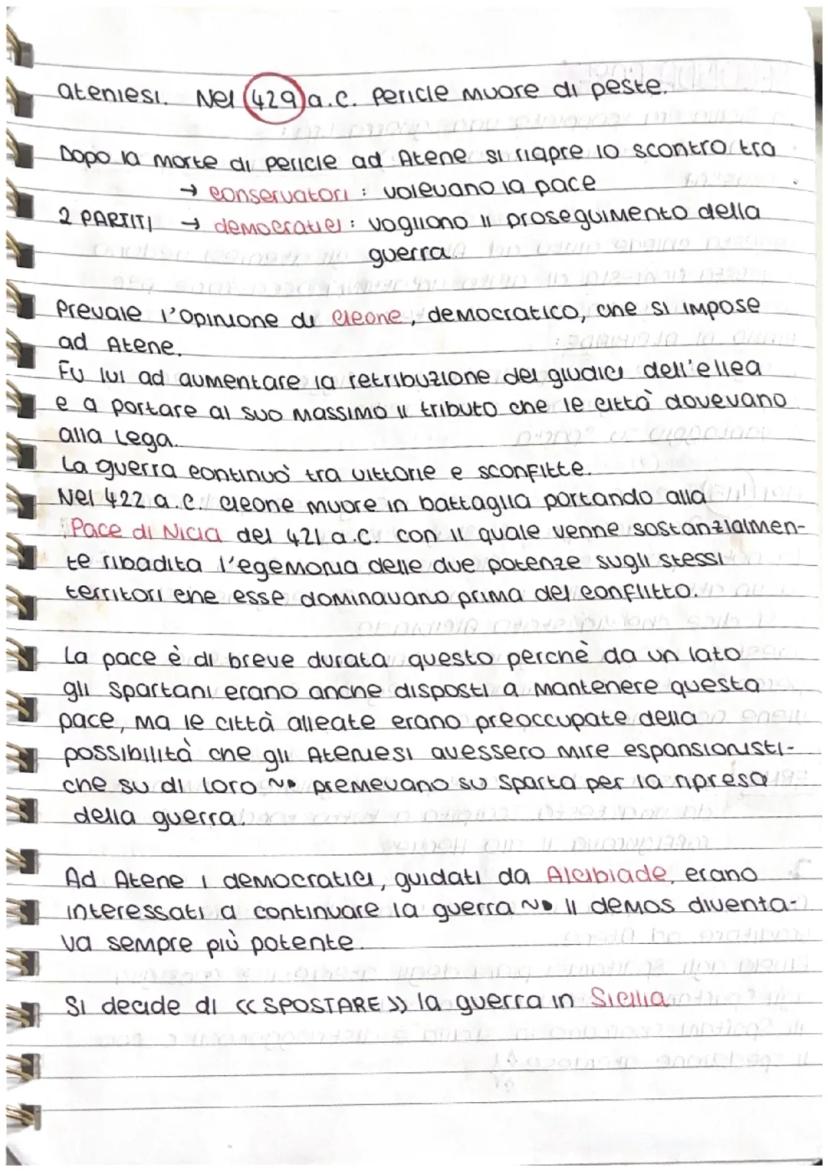 ateniesi. Nel 429 a.C. Pericle muore di peste.
Dopo la morte di Pericle ad Atene si riapre lo scontro tra
→ conservatori : volevano la pace
2 PARTITI → democratici : vogliono il proseguimento della
guerra.
Prevale l'opinione di Cleone, democratico, che si impose
ad Atene.
Fu lui ad aumentare la retribuzione dei giudici dell'eliea
e a portare al suo massimo il tributo che le città dovevano
alla Lega.
La guerra continuò tra vittorie e sconfitte.
Nel 422 a.C. Cleone muore in battaglia portando alla
Pace di Nicia del 421 a.C. con il quale venne sostanzialmen-
te ribadita l'egemonia delle due potenze sugli stessi
territori che esse dominavano prima del conflitto.
La pace è di breve durata questo perchè da un lato
gli Spartani erano anche disposti a mantenere questa
pace, ma le città alleate erano preoccupate della
possibilità che gli Ateniesi avessero mire espansionisti-
che su di loro ~> premevano su Sparta per la ripresa
della guerra.
Ad Atene i democratici, guidati da Alcibiade, erano
interessati a continuare la guerra ~> il demos diventa-
va sempre più potente.
Si decide di <<SPOSTARE>> la guerra in Sicilia